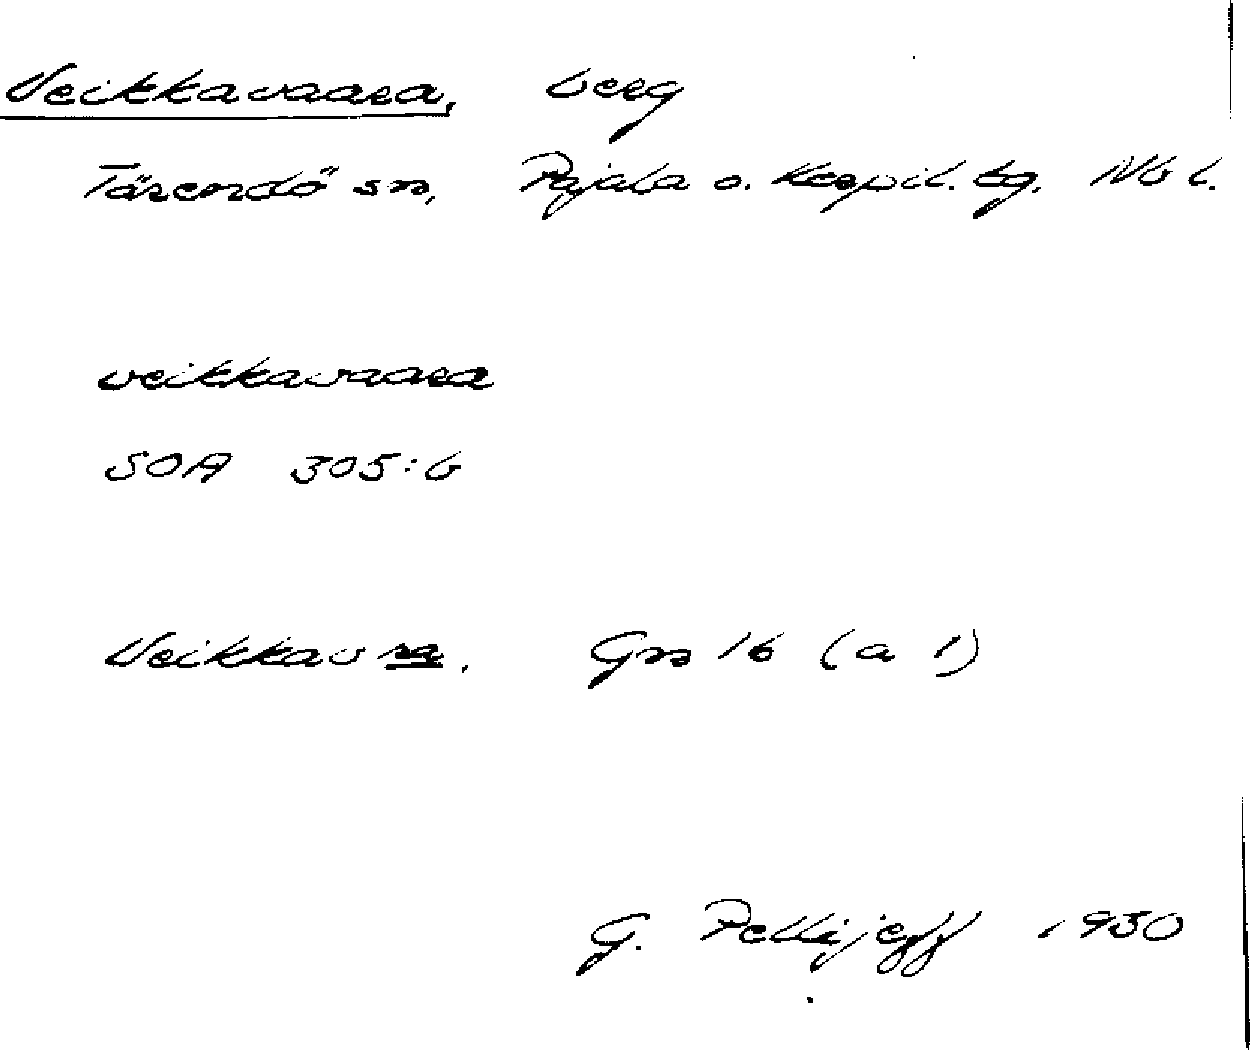 Veikkavaara, berg
Tärendö sn, Pajala o. Korpil. tg. Nb l.
veikkavaara
SOA 305:6
Veikkavra. Grs 16 (a 1)
G. Pellijeff 1930